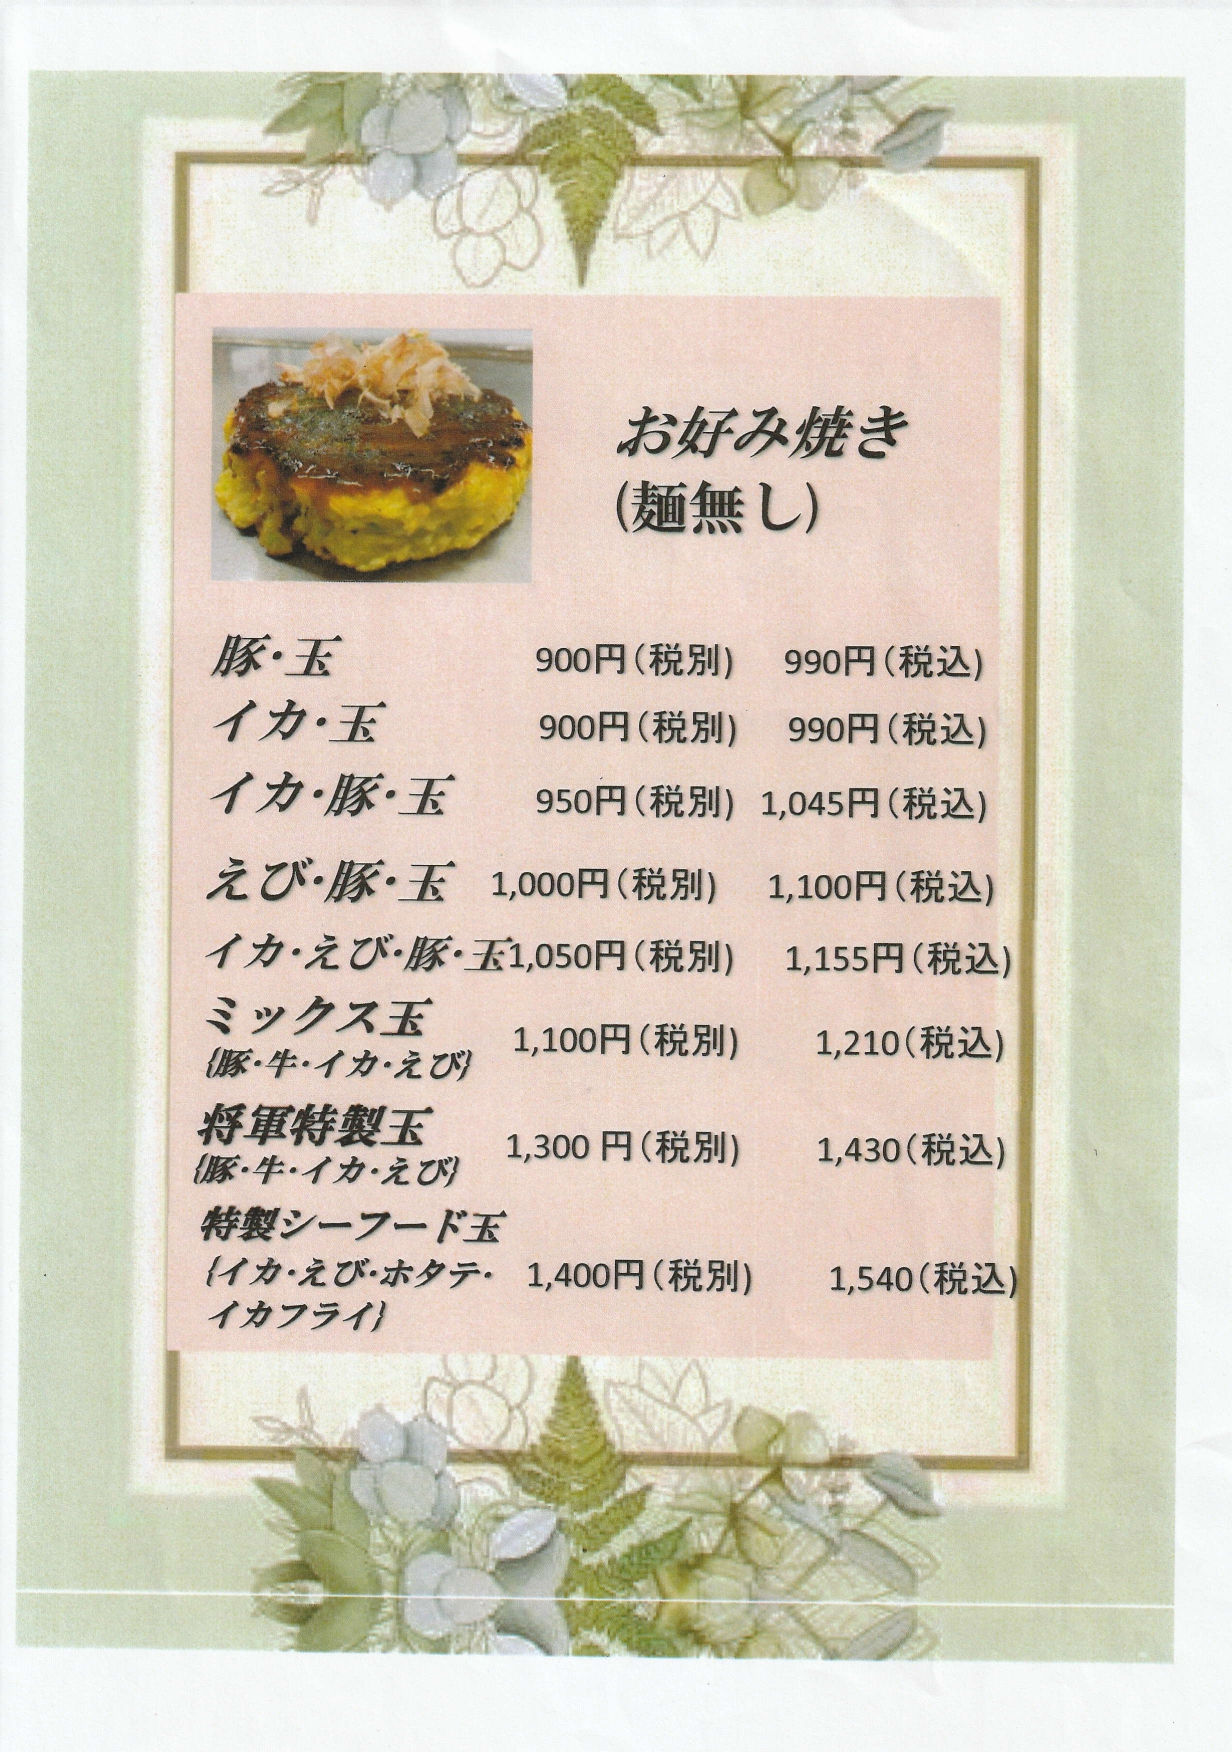 お好み焼き
(麺無し)
豚・玉 900円(税別) 990円(税込)
イカ・玉 900円(税別) 990円(税込)
イカ・豚・玉 950円(税別) 1,045円(税込)
えび・豚・玉 1,000円(税別) 1,100円(税込)
イカ・えび・豚・玉 1,050円(税別) 1,155円(税込)
ミックス玉
{豚・牛・イカ・えび} 1,100円(税別) 1,210(税込)
将軍特製玉
{豚・牛・イカ・えび} 1,300 円(税別) 1,430(税込)
特製シーフード玉
{イカ・えび・ホタテ・ 1,400円(税別) 1,540(税込)
イカフライ}